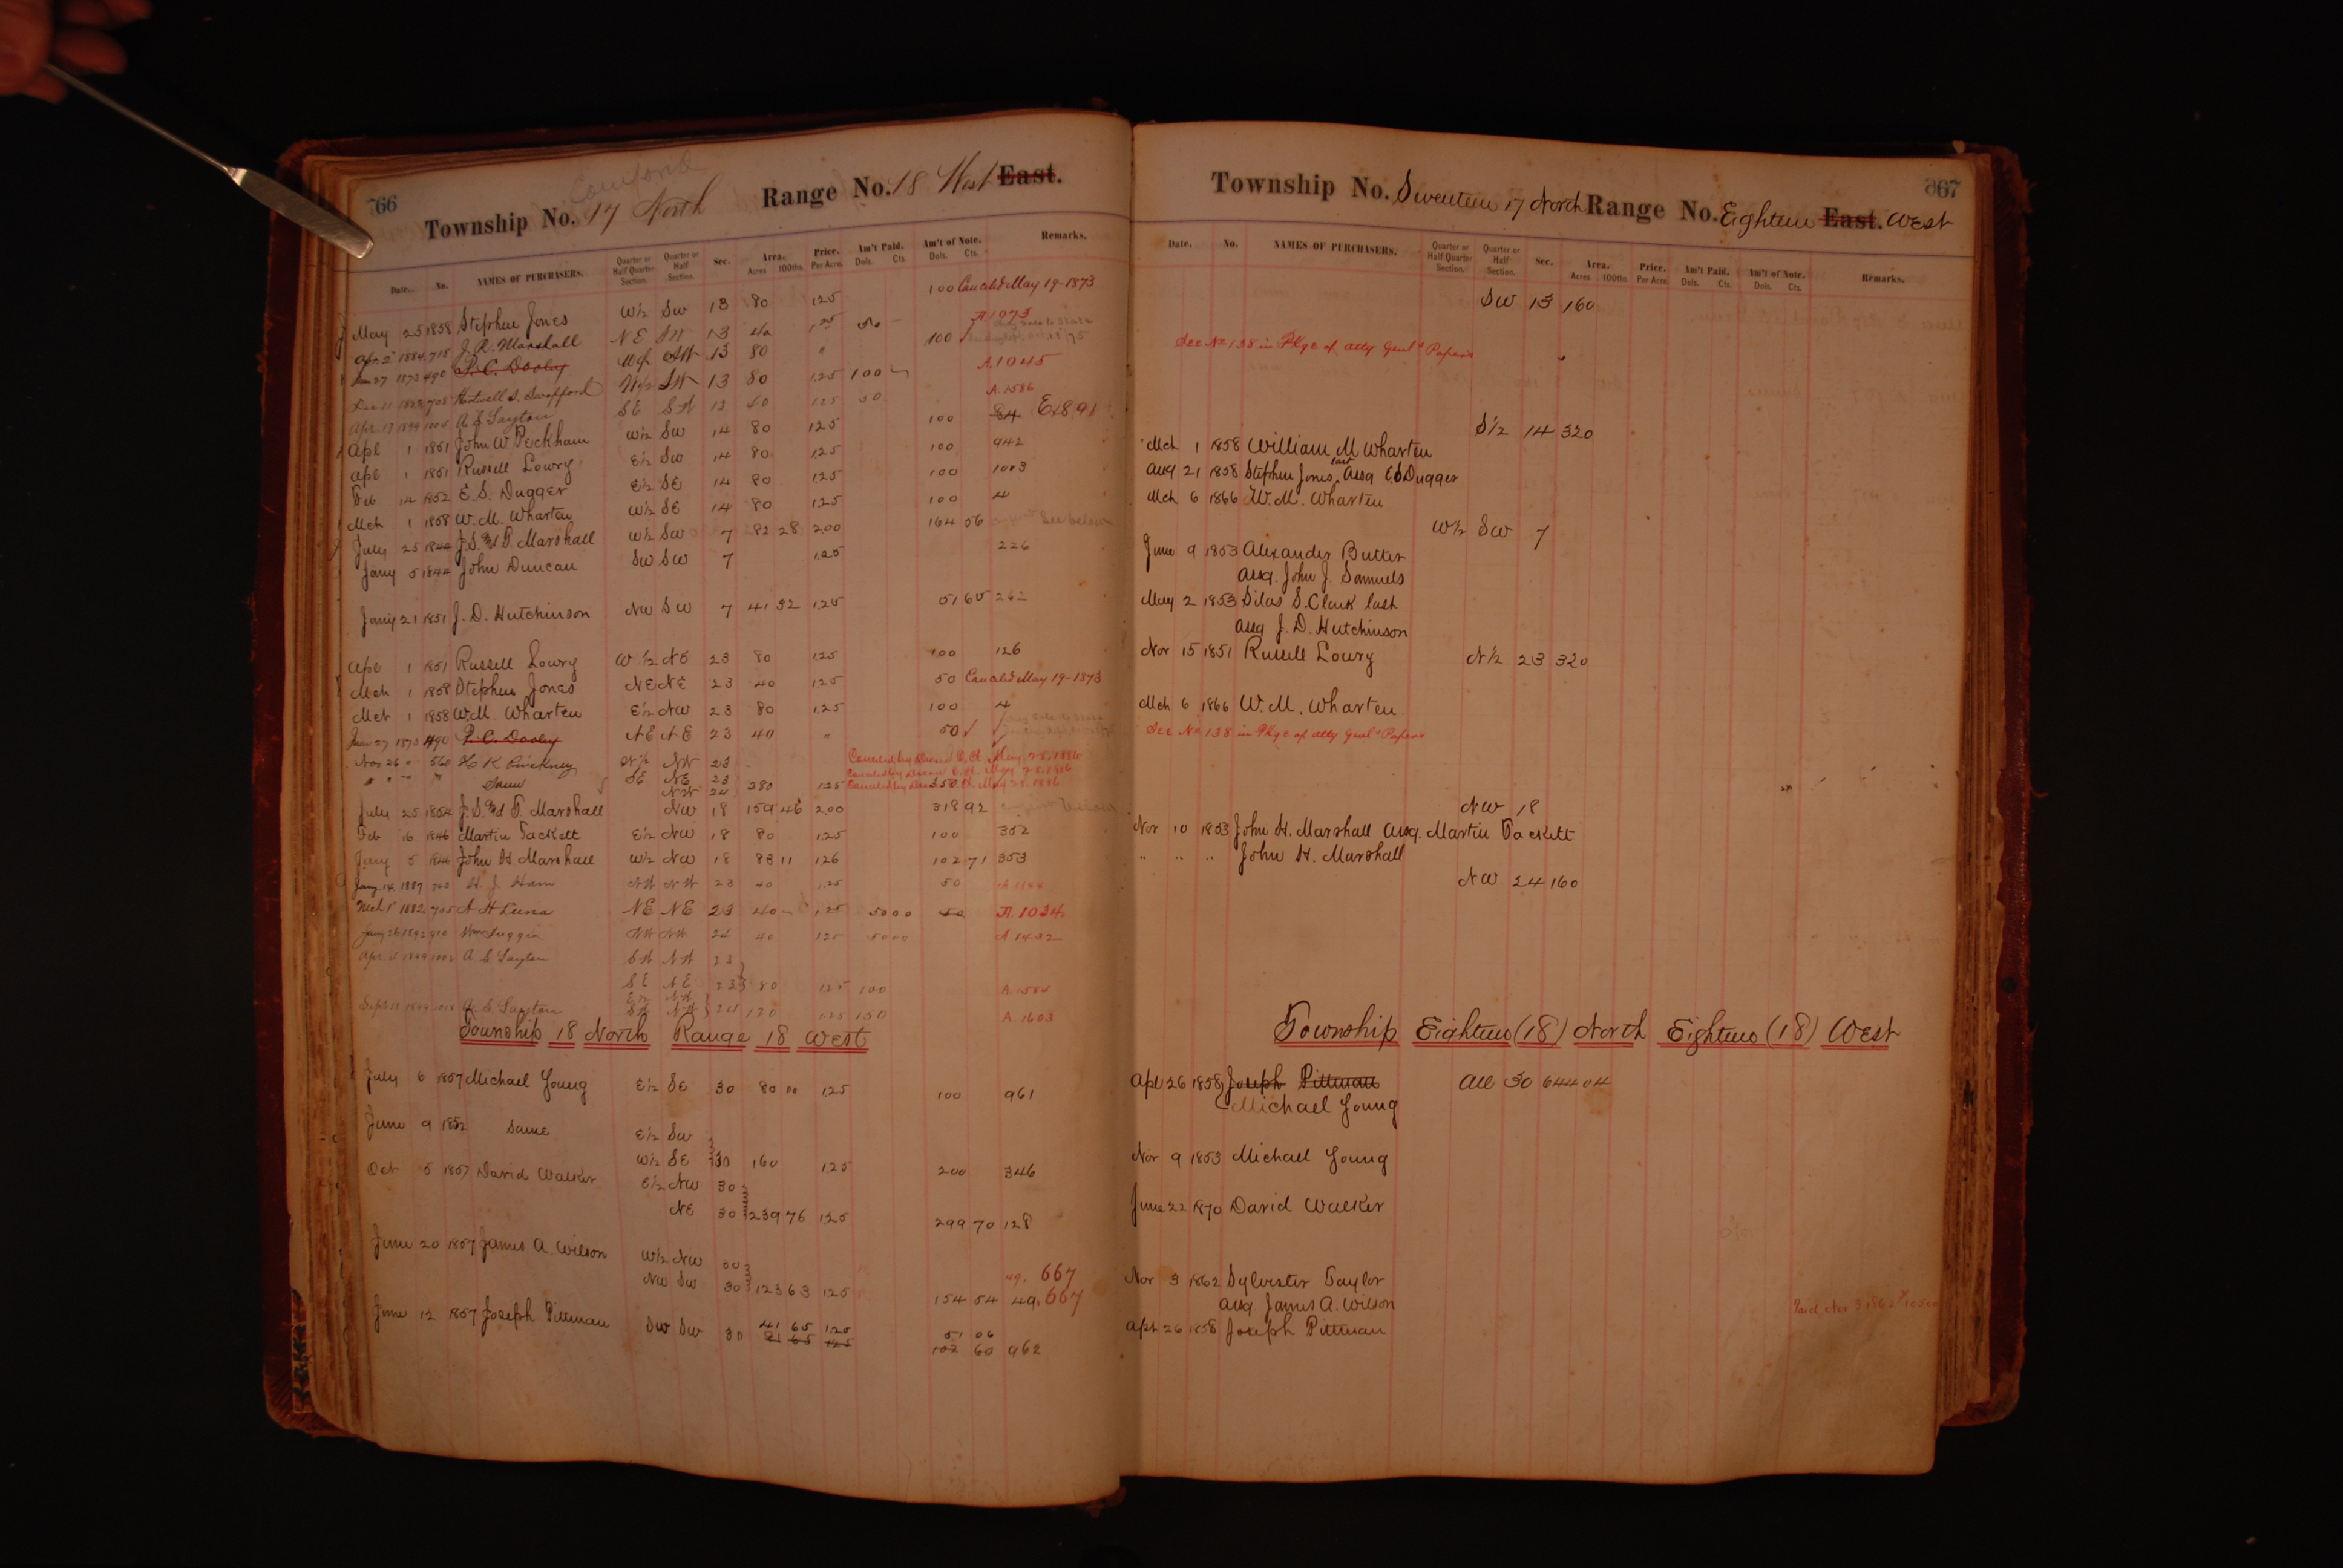 66
Township No. 17 North Range No. 18 West East.
Date. No. NAMES OF PURCHASERS. Quarter or Half Quarter Section. Quarter or Half Section. Sec. Area. Acres 100ths. Price. Per Acre. Am't Paid. Dols. Cts. Am't of Note. Dols. Cts. Remarks.
May 25 1858 Stephen Jones W½ SW 13 80 1.25 100 Canceld May 19-1873
1884 718 J. R. Marshall NE SW 13 40 1.25 50 A 1073
27 1873 490 P. C. Dooley W½ SW 13 80 " 100
708 Hartwell S. Swafford W½ SW 13 80 1.25 100 A. 1045
Apr 17 1899 A S Layton SE SW 13 40 1.25 50 A. 1586
Apl 1 1851 John W Peckham W½ SW 14 80 1.25 100 84 Ex 891
Apl 1 1851 Russell Lowry E½ SW 14 80 1.25 100 942
Feb 14 1852 E S. Dugger E½ SE 14 80 1.25 100 1003
Mch 1 1858 W. M. Wharten W½ SE 14 80 1.25 100 4
July 25 1844 J. S. & T. Marshall W½ SW 7 82 28 2.00 164 56 See below
Jany 5 1844 John Duncan SW SW 7 1.25 226
Jany 21 1851 J. D. Hutchinson NW SW 7 41 32 1.25 51 65 262
Apl 1 1851 Russell Lowry W½ NE 23 80 1.25 100 126
Mch 1 1858 Stephen Jones NE NE 23 40 1.25 50 Canceld May 19-1873
Mch 1 1858 W. M. Wharten E½ NW 23 80 1.25 100 4
27 1873 490 P. C. Dooley NE NE 23 40 " 50
Nov 26 " 560 H K Pinckney W½ NW 23 Canceled by Decree C. Ct. May 28. 1886
" " " " Same SE NE 23 Canceled by Decree C. Ct. May 28. 1886
NW 24 280 1.25 350 Canceled by Decree C. Ct. May 28. 1886
July 25 1854 J. S. & T. Marshall NW 18 159 46 2.00 318 92
Feb 16 1846 Martin Tackett E½ NW 18 80 1.25 100 352
Jany 5 1844 John H Marshall W½ NW 18 83 11 1.26 102 71 353
Jany 14 1887 H. J. Ham NW NW 23 40 1.25 50
Mch 1 1882 705 A H Luna NE NE 23 40 1.25 50 00 50 A. 1034
Jany 26 1892 NW NW 24 40 1.25 50 00 A 1432
Apr 1899 A S Layton SW NW 23
SE NE 23 80 1.25 100 A. 1585
E½ NW
Sept 11 1899 A. S. Layton SW NW 24 120 1.25 150 A. 1603
Township 18 North Range 18 West
July 6 1857 Michael Young E½ SE 30 80 00 1.25 100 961
June 9 1852 Same E½ SW
W½ SE 30 160 1.25 200 346
Oct 5 1857 David Walker E½ NW 30
NE 30 239 76 1.25 299 70 128
June 20 1857 James A. Wilson W½ NW 30 49. 667
NW SW 30 123 63 1.25 154 54 49. 667
June 12 1857 Joseph Pittman SW SW 30 41 65 1.25 51 06
81 65 1.25 102 60 962
367
Township No. Seventeen 17 North Range No. Eighteen East. West
Date. No. NAMES OF PURCHASERS. Quarter or Half Quarter Section. Quarter or Half Section. Sec. Area. Acres 100ths. Price. Per Acre. Am't Paid. Dols. Cts. Am't of Note. Dols. Cts. Remarks.
SW 13 160
See No 138 in Pkge of Atty Genl's Papers
S½ 14 320
Mch 1 1858 William M Wharten
Aug 21 1858 Stephen Jones last Assg E S Dugger
Mch 6 1866 W. M. Wharten
W½ SW 7
June 9 1853 Alexander Butter
assg. John J. Samuels
May 2 1853 Silas S. Clark last
assg J. D. Hutchinson
Nov 15 1851 Russell Lowry N½ 23 320
Mch 6 1866 W. M. Wharten
See No 138 in Pkge of Atty Genl's Papers
NW 18
Nov 10 1853 John H. Marshall Assg. Martin Tackett
" " " John H. Marshall
NW 24 160
Township Eighteen (18) North Eighteen (18) West
Apl 26 1858 Joseph Pittman All 30 644 04
Michael Young
Nov 9 1853 Michael Young
June 22 1870 David Walker
Nov 3 1862 Sylvester Taylor
assg James A. Wilson
Paid Nov 3 1862
Apl 26 1858 Joseph Pittman